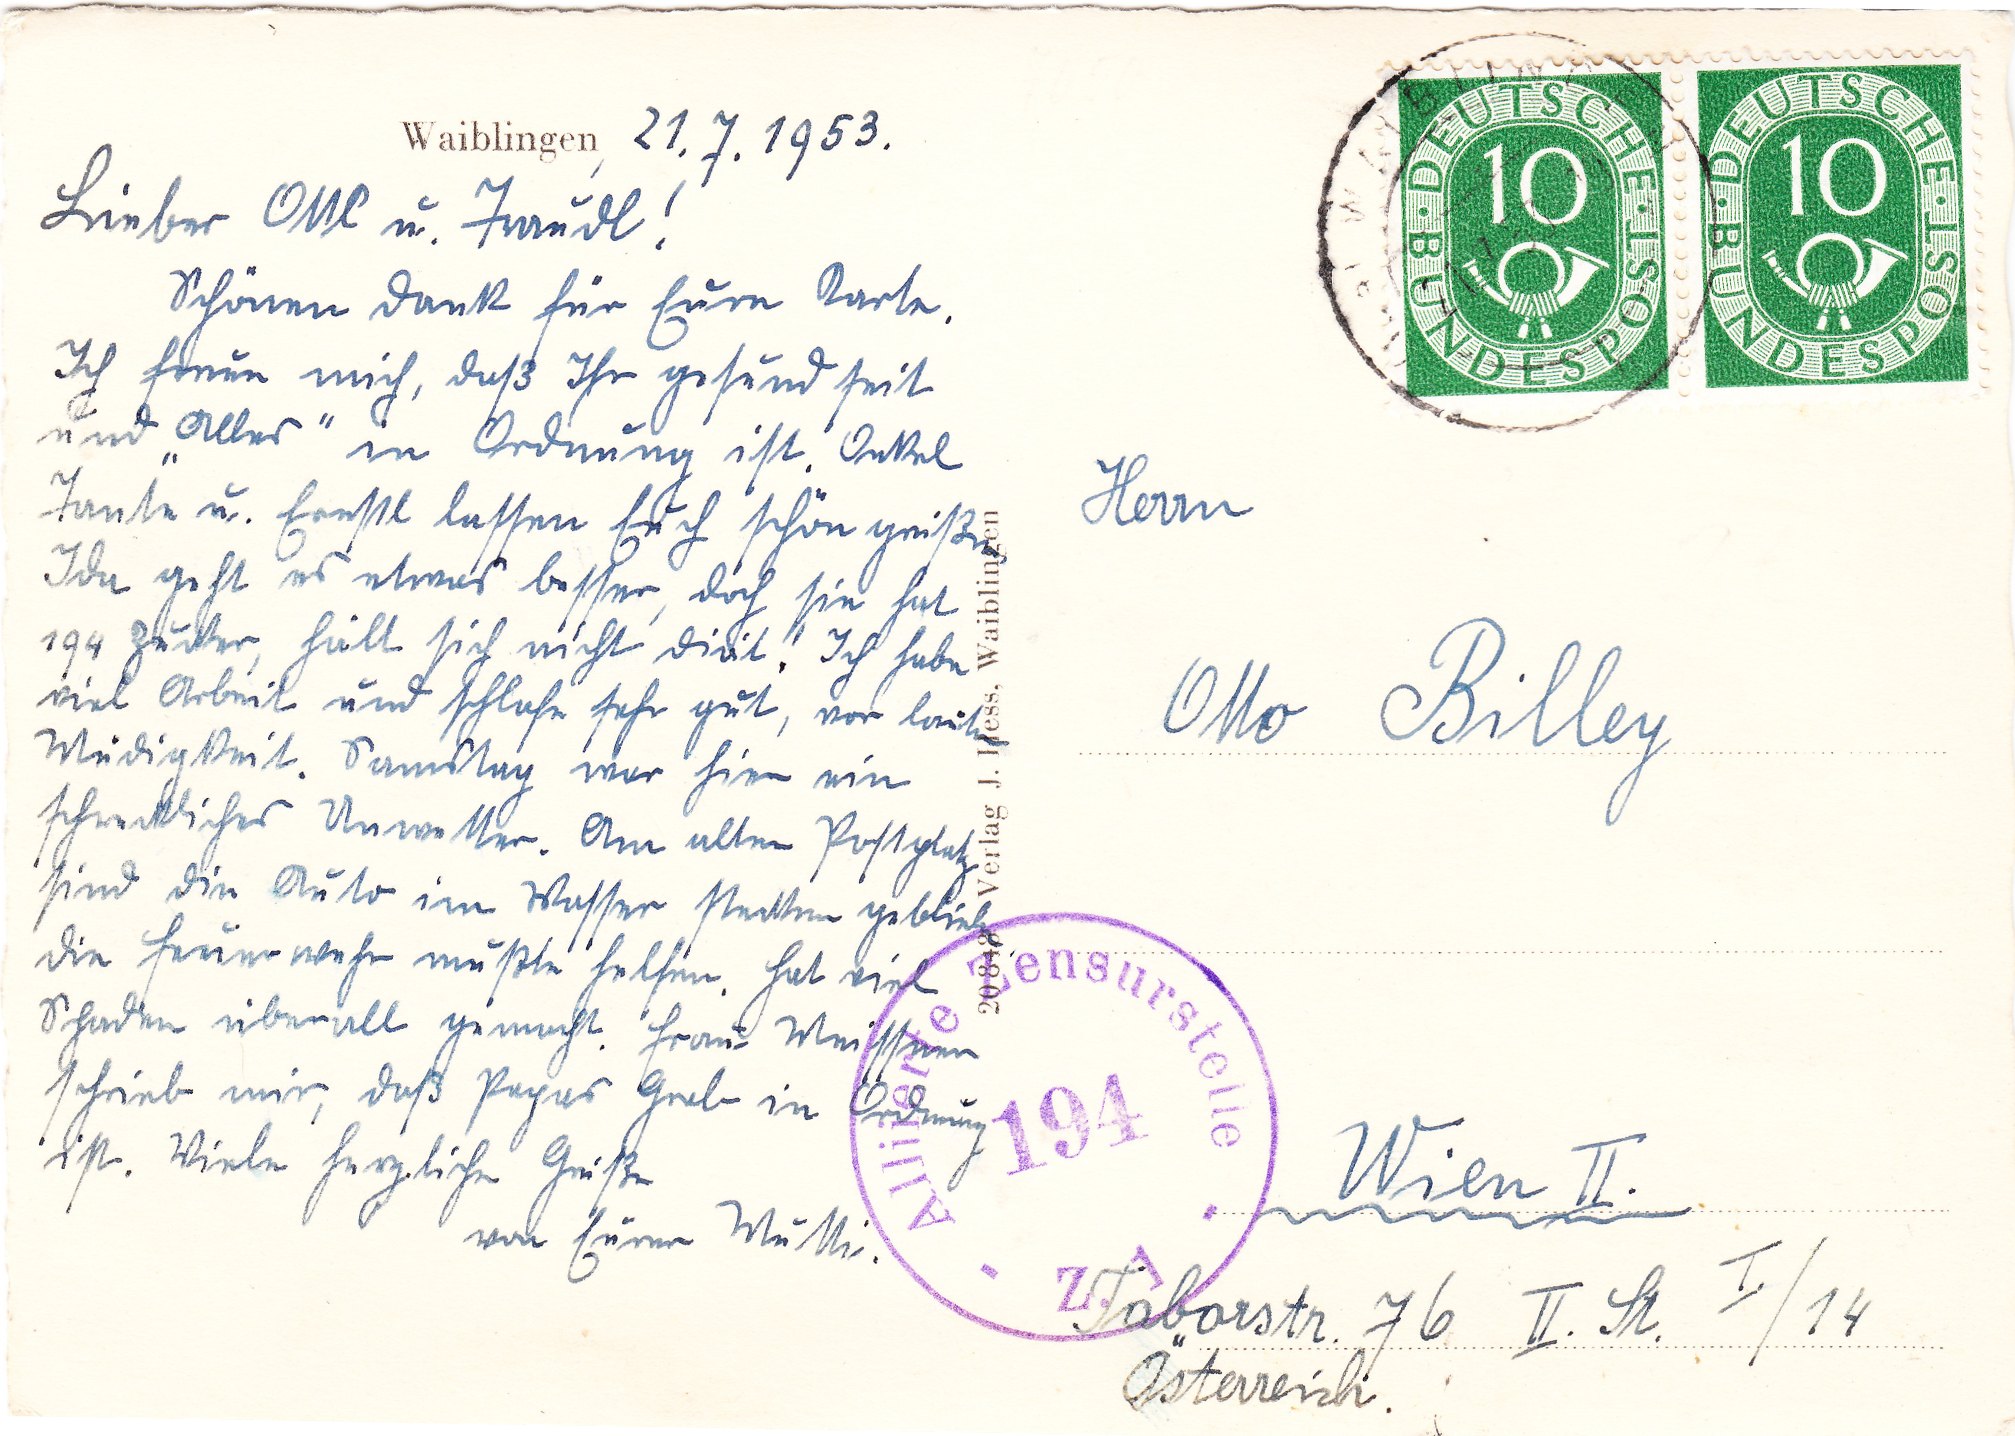 Waiblingen, 21.7.1953.
Lieber Ottl u. Traudl!
Schönen Dank für Eure Karte.
Ich freue mich, daß Ihr gesund seit
und „Alles" in Ordnung ist. Onkel
Tante u. Ernstl lassen Euch schön grüßen
Ida geht es etwas besser, doch sie hat
194 Zucker, hält sich nicht diät! Ich habe
viel Arbeit und schlafe sehr gut, vor lauter
Müdigkeit. Samstag war hier ein
schreckliches Unwetter. Am alten Postplatz
sind die Auto im Wasser stecken geblieb.
die Feuerwehr mußte helfen. Hat viel
Schaden überall gemacht. Frau Meissner
schrieb mir, daß Papas Grab in Ordnung
ist. Viele herzliche Grüße
von Eurer Mutti.
20848 Verlag J. Hess, Waiblingen
WAIBLINGEN
DEUTSCHE BUNDESPOST
10
DEUTSCHE BUNDESPOST
10
Herrn
Otto Billey
Wien II.
Taborstr. 76 II. St. I./14
Österreich.
Alliierte Zensurstelle
194